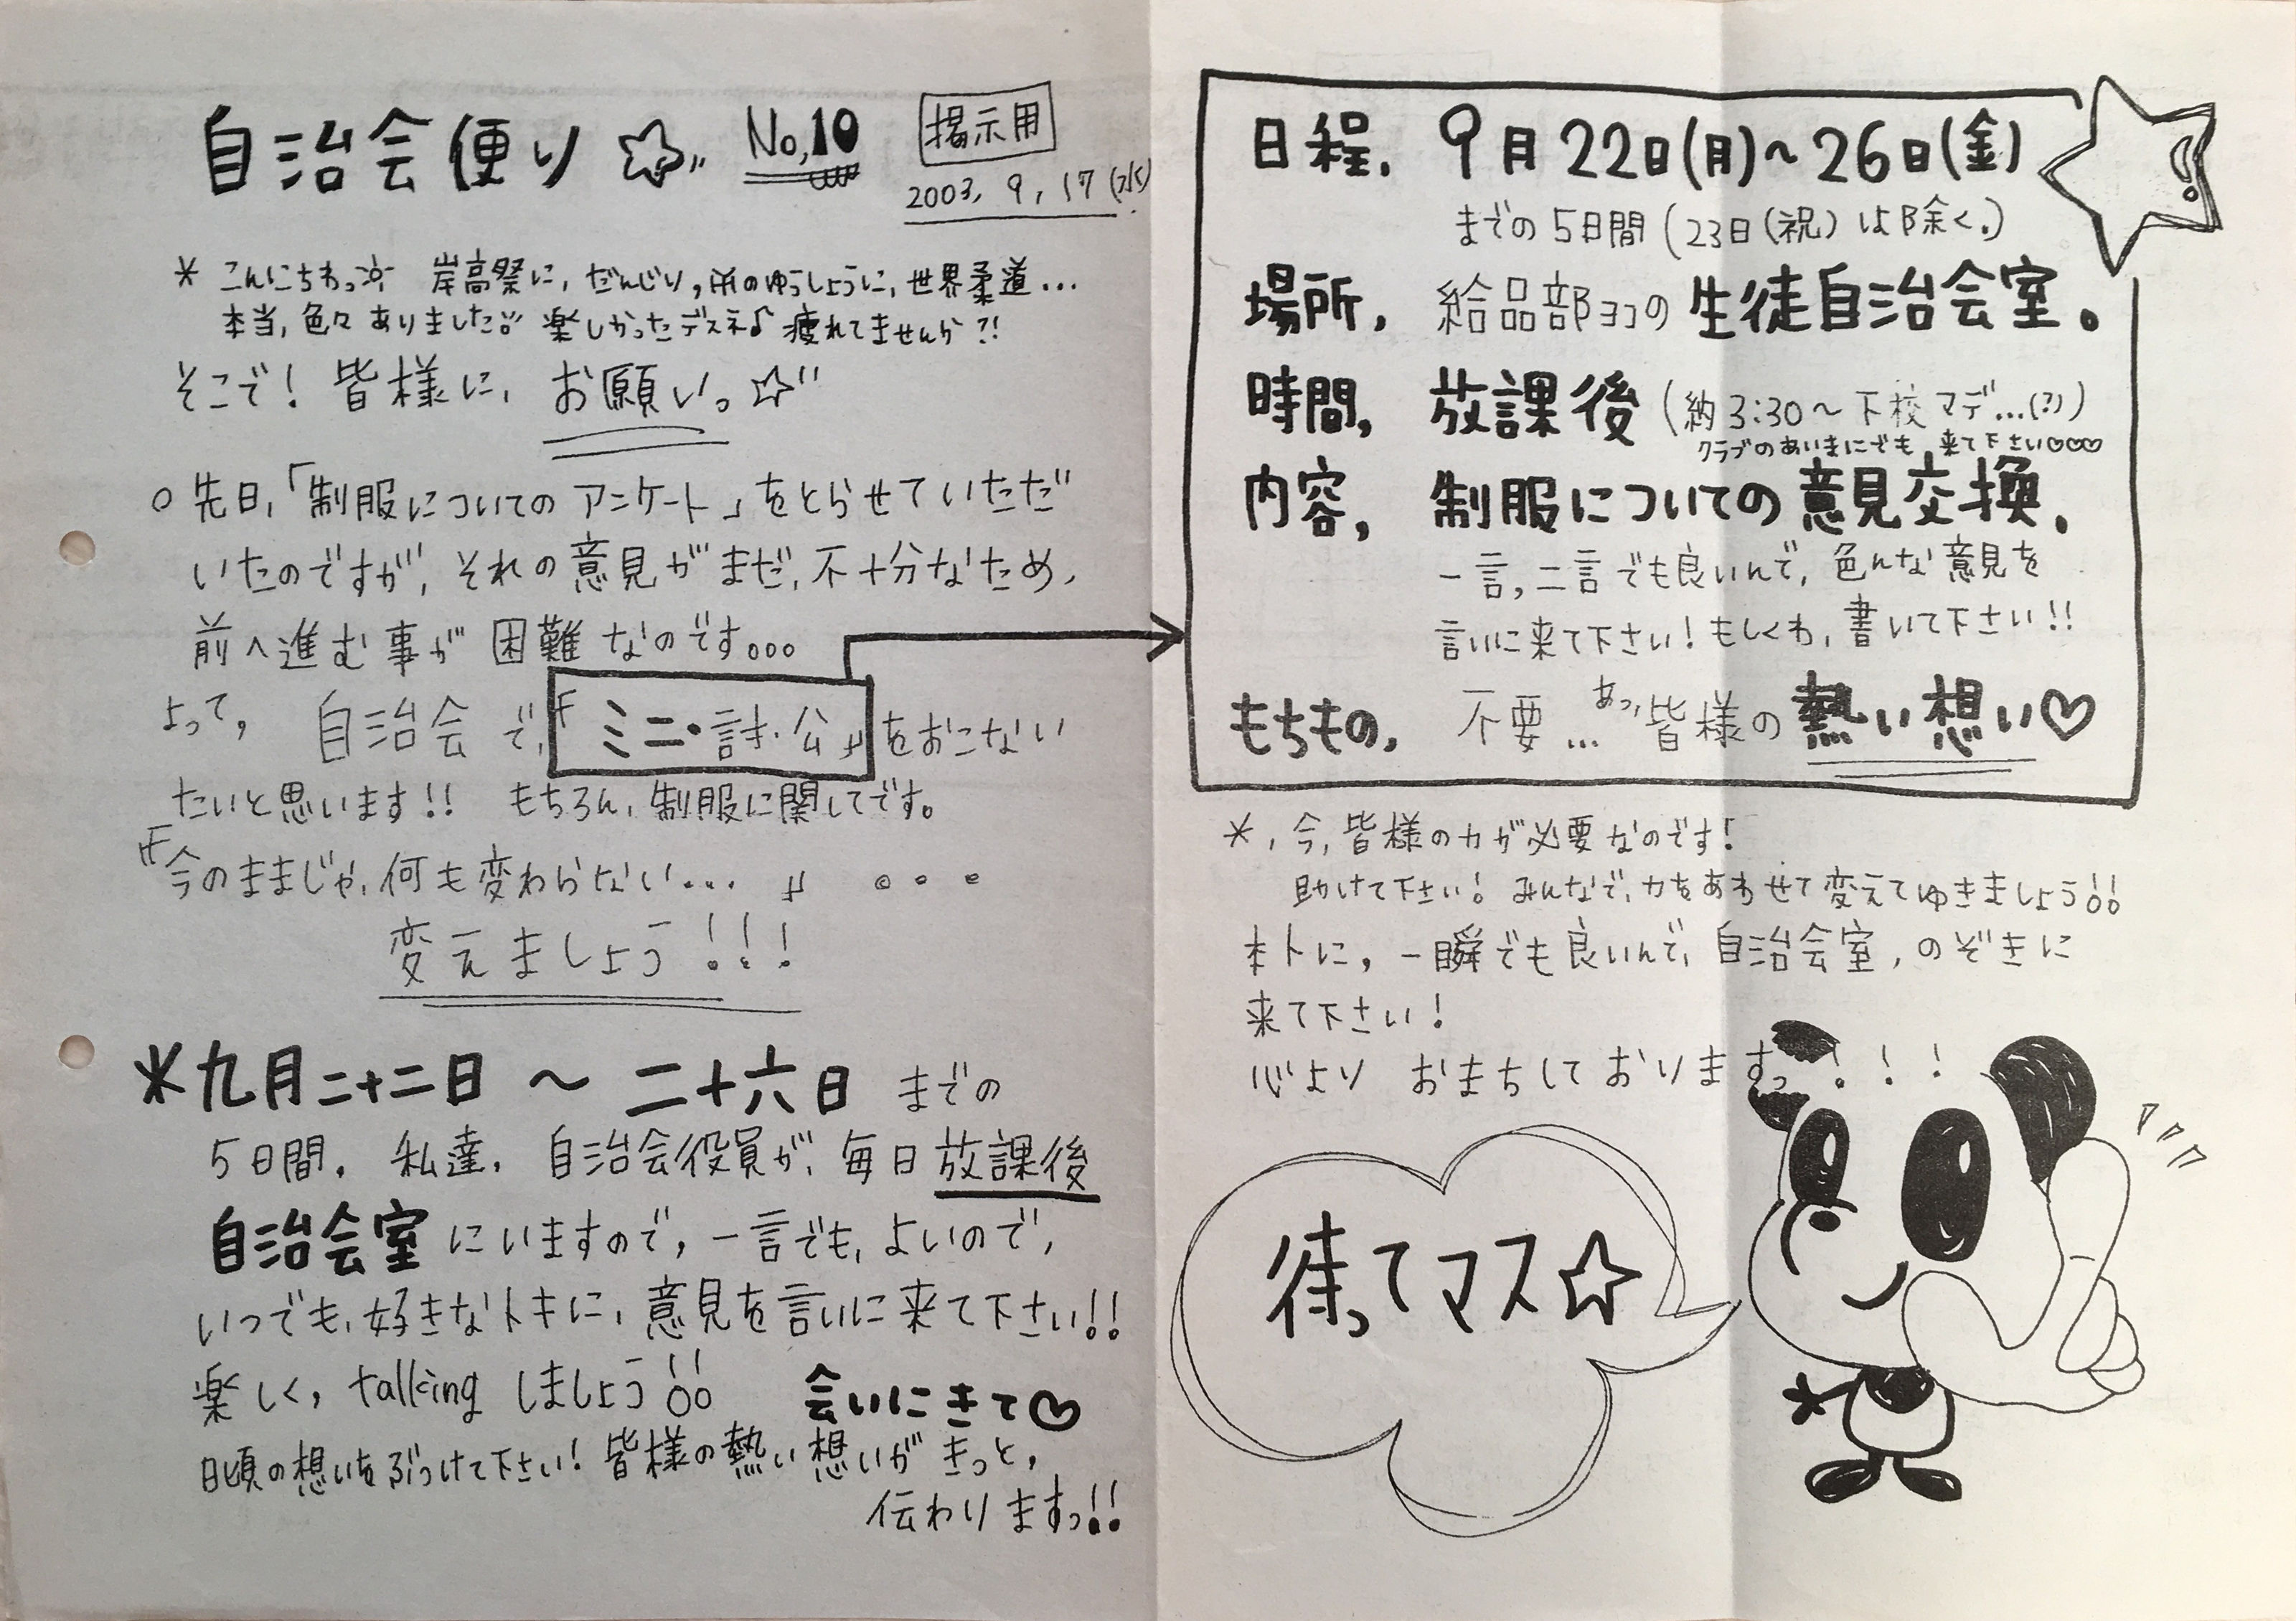 自治会便り☆ No.10 掲示用
2003, 9, 17 (水)
* こんにちわっ 岸高祭に, だんじり, 阪神のゆうしょうに, 世界柔道...
本当, 色々ありました!! 楽しかったデスネ♪ 疲れてませんか?!
そこで! 皆様に, お願い。☆
○先日,「制服についてのアンケート」をとらせていただ
いたのですが, それの意見がまだ, 不十分なため,
前へ進む事が困難なのです。。。
よって, 自治会で,『ミニ・討・公』をおこない
たいと思います!! もちろん, 制服に関してです。
『今のままじゃ, 何も変わらない... 』 。。。
変えましょう!!!
*九月二十二日 〜 二十六日 までの
5日間, 私達, 自治会役員が, 毎日放課後
自治会室にいますので, 一言でも, よいので,
いつでも, 好きなトキに, 意見を言いに来て下さい!!
楽しく, talking しましょう!! 会いにきて♡
日頃の想いをぶつけて下さい! 皆様の熱い想いがきっと,
伝わりますっ!!
日程, 9月22日(月)〜26日(金)
までの5日間 (23日(祝)は除く.)
場所, 給品部ヨコの生徒自治会室。
時間, 放課後 (約3:30〜下校マデ...(?))
クラブのあいまにでも, 来て下さい♡♡♡
内容, 制服についての意見交換.
一言, 二言でも良いんで, 色んな意見を
言いに来て下さい! もしくわ, 書いて下さい!!
もちもの, 不要... あっ, 皆様の熱い想い♡
*, 今, 皆様の力が必要なのです!
助けて下さい! みんなで, 力をあわせて変えてゆきましょう!!
ホトに, 一瞬でも良いんで, 自治会室, のぞきに
来て下さい!
心より おまちしておりますっ!!!
待ってマス☆